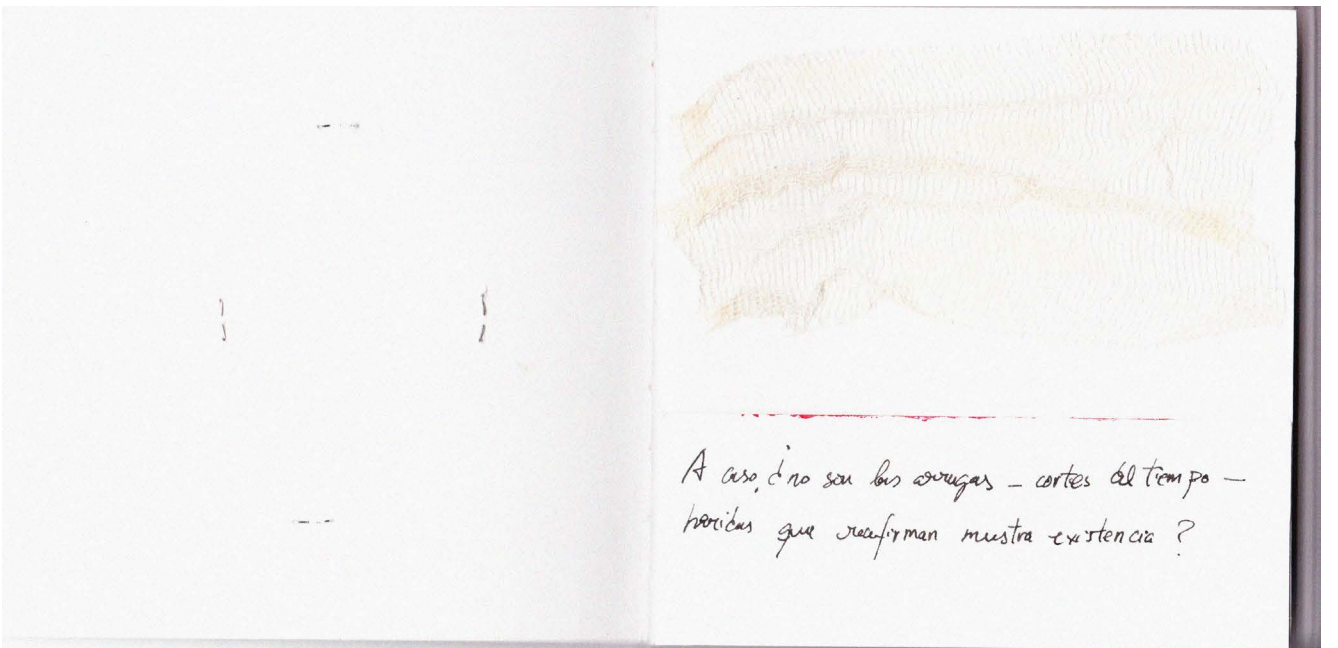 A caso, ¿no son las arrugas – cortes del tiempo –
heridas que reafirman nuestra existencia?